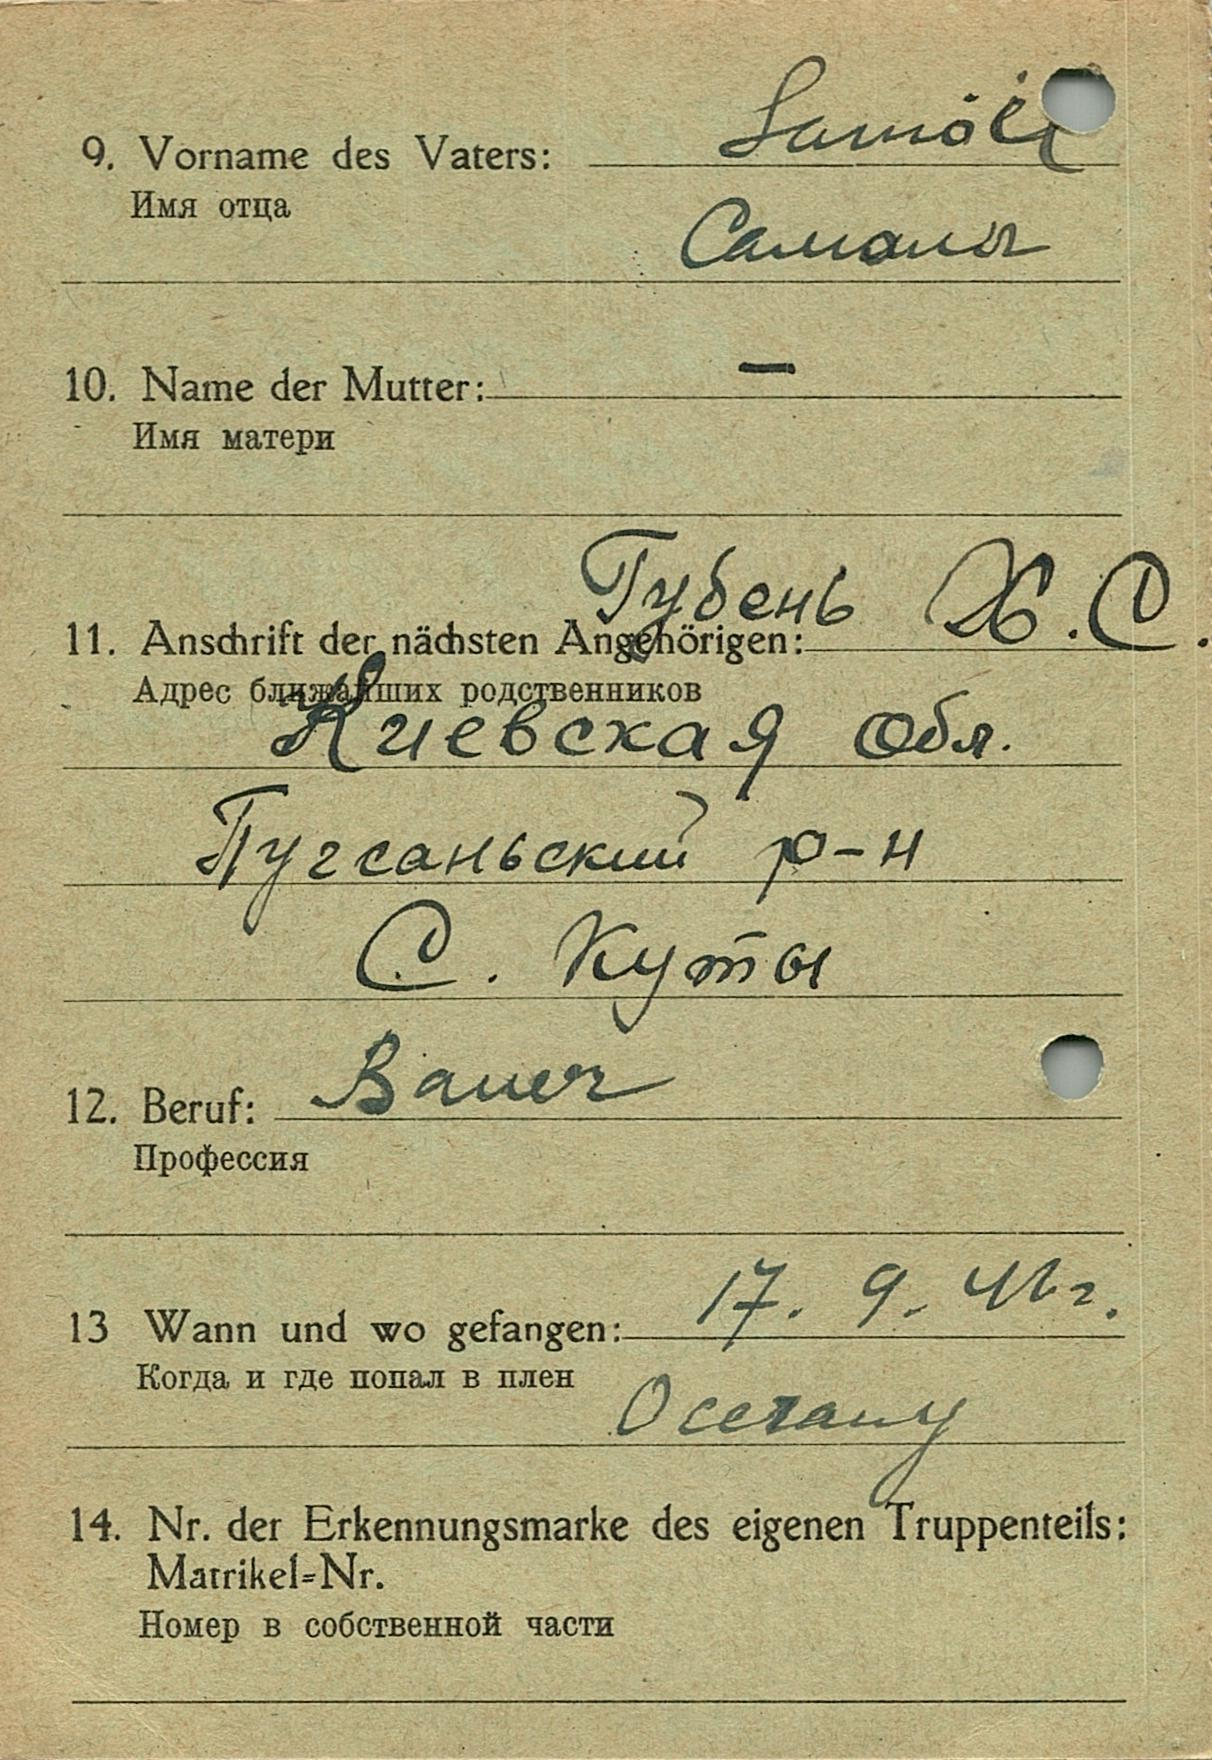 9. Vorname des Vaters:
Имя отца
10. Name der Mutter: –
Имя матери
Губень Х. С.
11. Anschrift der nächsten Angehörigen:
Адрес ближайших родственников
Киевская обл.
Пугсаньский р-н
С. Куты
12. Beruf: Bauer
Профессия
13 Wann und wo gefangen: 17. 9. 41 г.
Когда и где попал в плен
14. Nr. der Erkennungsmarke des eigenen Truppenteils:
Matrikel=Nr.
Номер в собственной части